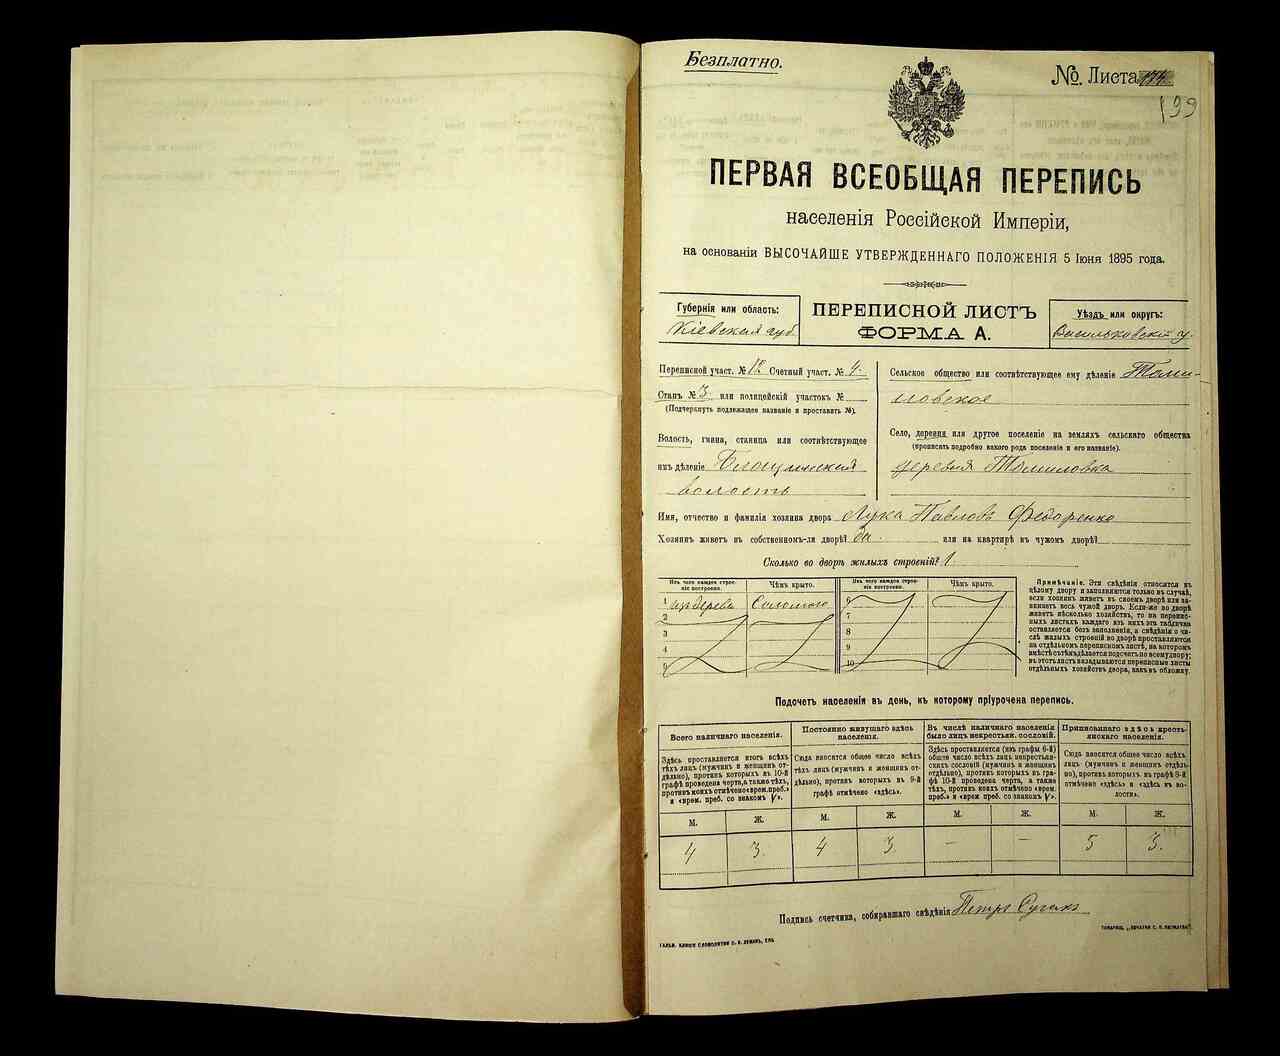 Безплатно.
№ Листа 174
199
ПЕРВАЯ ВСЕОБЩАЯ ПЕРЕПИСЬ
населенія Россійской Имперіи,
на основаніи ВЫСОЧАЙШЕ УТВЕРЖДЕННАГО ПОЛОЖЕНІЯ 5 Іюня 1895 года.
Губернія или область:
Кіевская губ.
ПЕРЕПИСНОЙ ЛИСТЪ
ФОРМА А.
Уѣздъ или округъ:
Васильковскій у.
Переписной участ. № Счетный участ. № 4.
Станъ № 3 или полицейскій участокъ №
(Подчеркнуть подлежащее названіе и проставить №).
Волость, гмина, станица или соотвѣтствующее
имъ дѣленіе
волость
Сельское общество или соотвѣтствующее ему дѣленіе Томи-
ловское
Село, деревня или другое поселеніе на земляхъ сельскаго общества
(прописать подробно какого рода поселеніе и его названіе).
деревня Томиловка
Имя, отчество и фамилія хозяина двора Лука Павловъ Федоренко
Хозяинъ живетъ въ собственномъ-ли дворѣ? да. или на квартирѣ въ чужомъ дворѣ?
Сколько во дворѣ жилыхъ строеній? 1
Изъ чего каждое строе-
ніе построено.
Чѣмъ крыто.
1 изъ дерева Соломою
2
3
4
5
Изъ чего каждое строе-
ніе построено.
Чѣмъ крыто.
6
7
8
9
10
Примѣчаніе. Эти свѣдѣнія относятся къ
цѣлому двору и заполняются только въ случаѣ,
если хозяинъ живетъ въ своемъ дворѣ или за-
нимаетъ весь чужой дворъ. Если-же во дворѣ
живетъ нѣсколько хозяйствъ, то на перепис-
ныхъ листахъ каждаго изъ нихъ эта табличка
оставляется безъ заполненія, а свѣдѣнія о чи-
слѣ жилыхъ строеній во дворѣ проставляются
на отдѣльномъ переписномъ листѣ, на которомъ
вмѣстѣ съ тѣмъ дѣлается подсчетъ по всему двору;
въ этотъ листъ вкладываются переписные листы
отдѣльныхъ хозяйствъ двора, какъ въ обложку.
Подсчетъ населенія въ день, къ которому пріурочена перепись.
Всего наличнаго населенія.
Здѣсь проставляется итогъ всѣхъ
тѣхъ лицъ (мужчинъ и женщинъ от-
дѣльно), противъ которыхъ въ 10-й
графѣ проведена черта, а также тѣхъ,
противъ коихъ отмѣчено «врем. преб.»
и «врем. преб. со знакомъ V».
М. Ж.
4 3.
Постоянно живущаго здѣсь
населенія.
Сюда вносится общее число всѣхъ
тѣхъ лицъ (мужчинъ и женщинъ от-
дѣльно), противъ которыхъ въ 9-й
графѣ отмѣчено «здѣсь».
М. Ж.
4 3
Въ числѣ наличнаго населенія
было лицъ некрестьян. сословій.
Здѣсь проставляется (изъ графы 6-й)
общее число всѣхъ лицъ некрестьян-
скихъ сословій (мужчинъ и женщинъ
отдѣльно), противъ которыхъ въ гра-
фѣ 10-й проведена черта, а также
тѣхъ, противъ коихъ отмѣчено «врем.
преб.» и «врем. преб. со знакомъ V».
М. Ж.
— —
Приписаннаго здѣсь кресть-
янскаго населенія.
Сюда вносится общее число всѣхъ
лицъ (мужчинъ и женщинъ отдѣль-
но), противъ которыхъ въ графѣ 8-й
отмѣчено «здѣсь» и «здѣсь въ во-
лости».
М. Ж.
5 3.
Подпись счетчика, собиравшаго свѣдѣнія Петръ